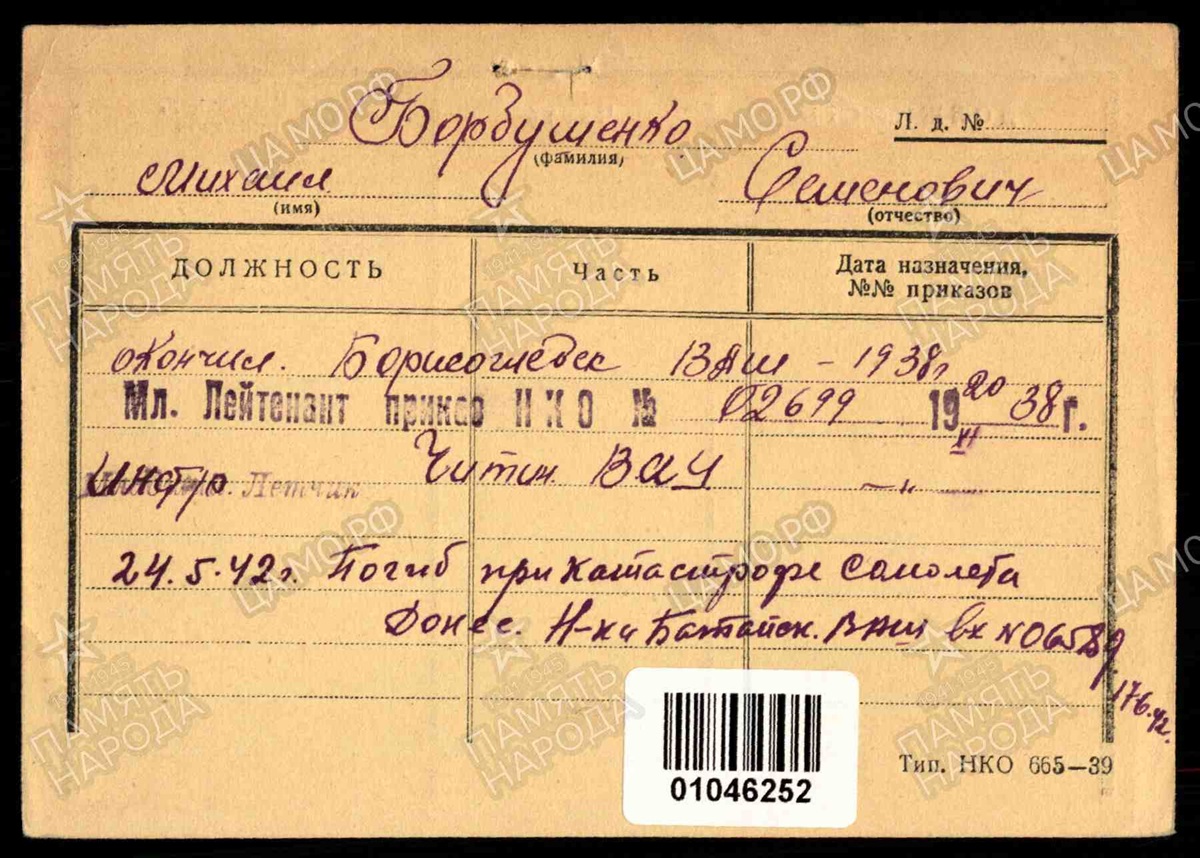 Борбушенко
Л. д. №
(фамилия)
Михаил Семенович
(имя) (отчество)
ДОЛЖНОСТЬ Часть Дата назначения, №№ приказов
окончил. Борисоглебск ВАШ - 1938г
Мл. Лейтенант приказ НКО № 02699 19 20/XI 38 г.
Инстр. Летчик Читин. ВАУ —"—
24.5.42г. Погиб при катастрофе самолета
Донес. Н-ка Батайск. ВАШ вх N 06589
17.6.42.
01046252
Тип. НКО 665—39
ЦАМО.РФ
1941-1945
ПАМЯТЬ
НАРОДА